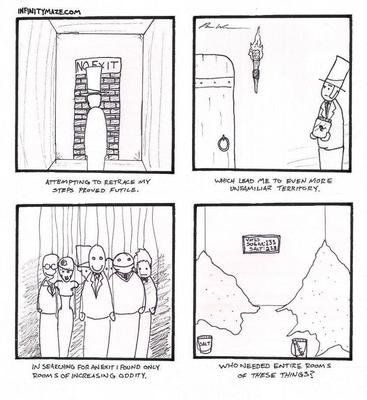 INFINITYMAZE.COM
NO EXIT
ATTEMPTING TO RETRACE MY
STEPS PROVED FUTILE.
WHICH LEAD ME TO EVEN MORE
UNFAMILIAR TERRITORY.
IN SEARCHING FOR AN EXIT I FOUND ONLY
ROOMS OF INCREASING ODDITY.
VOTES
SUGAR: 135
SALT: 218
SALT
WHO NEEDED ENTIRE ROOMS
OF THESE THINGS?